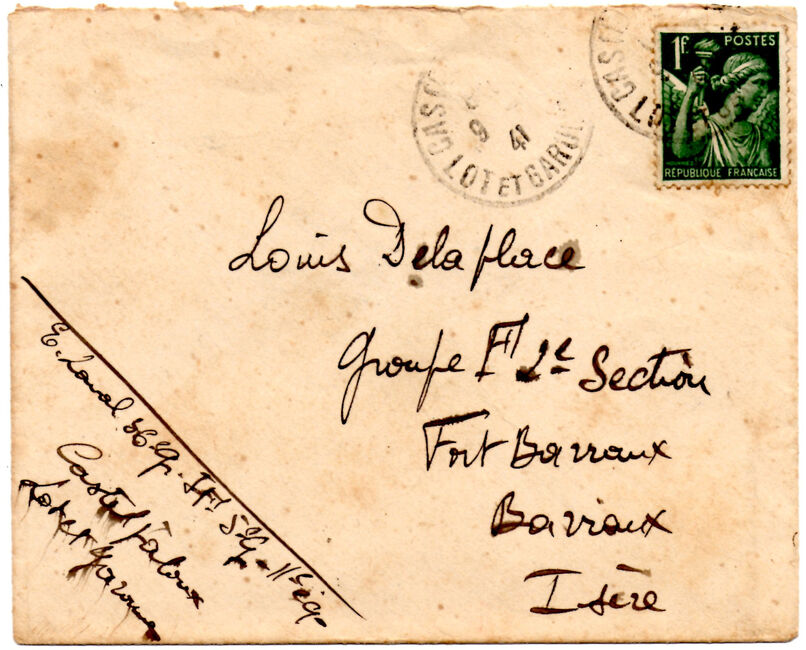 1F. POSTES
RÉPUBLIQUE FRANÇAISE
9 41
LOT ET GAR
Louis Delaplace
Groupe F 2e Section
Fort Barraux
Barraux
Isère
E. Laval 86 Gp.
Casteljaloux
Lot et Garonne